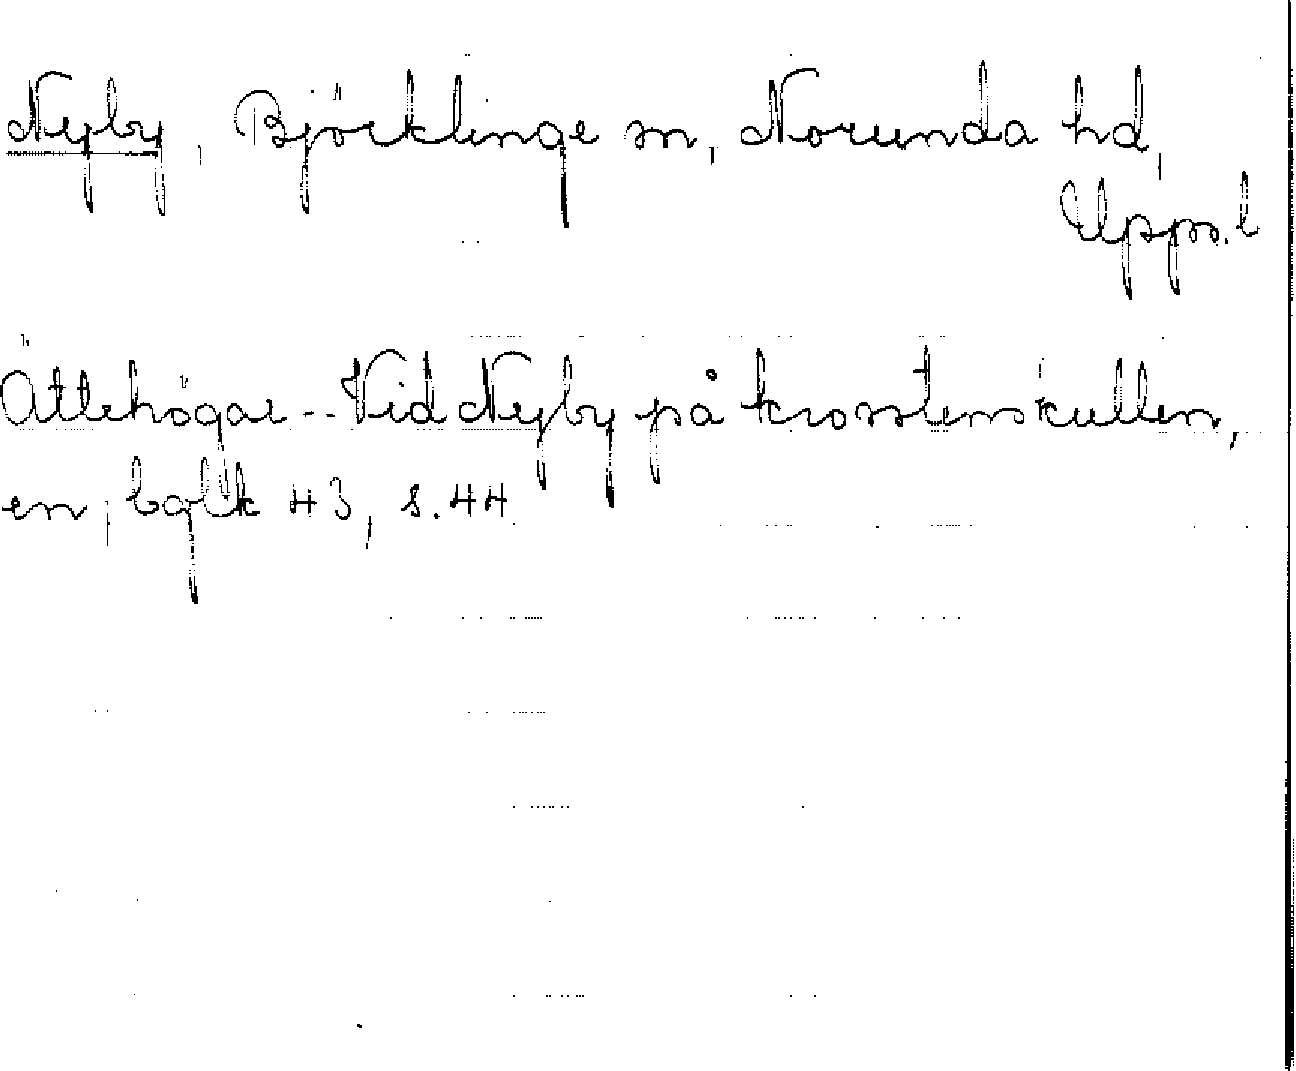 Nyby, Björklinge sn, Norunda hd,
Upps. l
Ättehögar -- Vid Nyby på krosstenskullen,
en, bqlk 43, s. 44